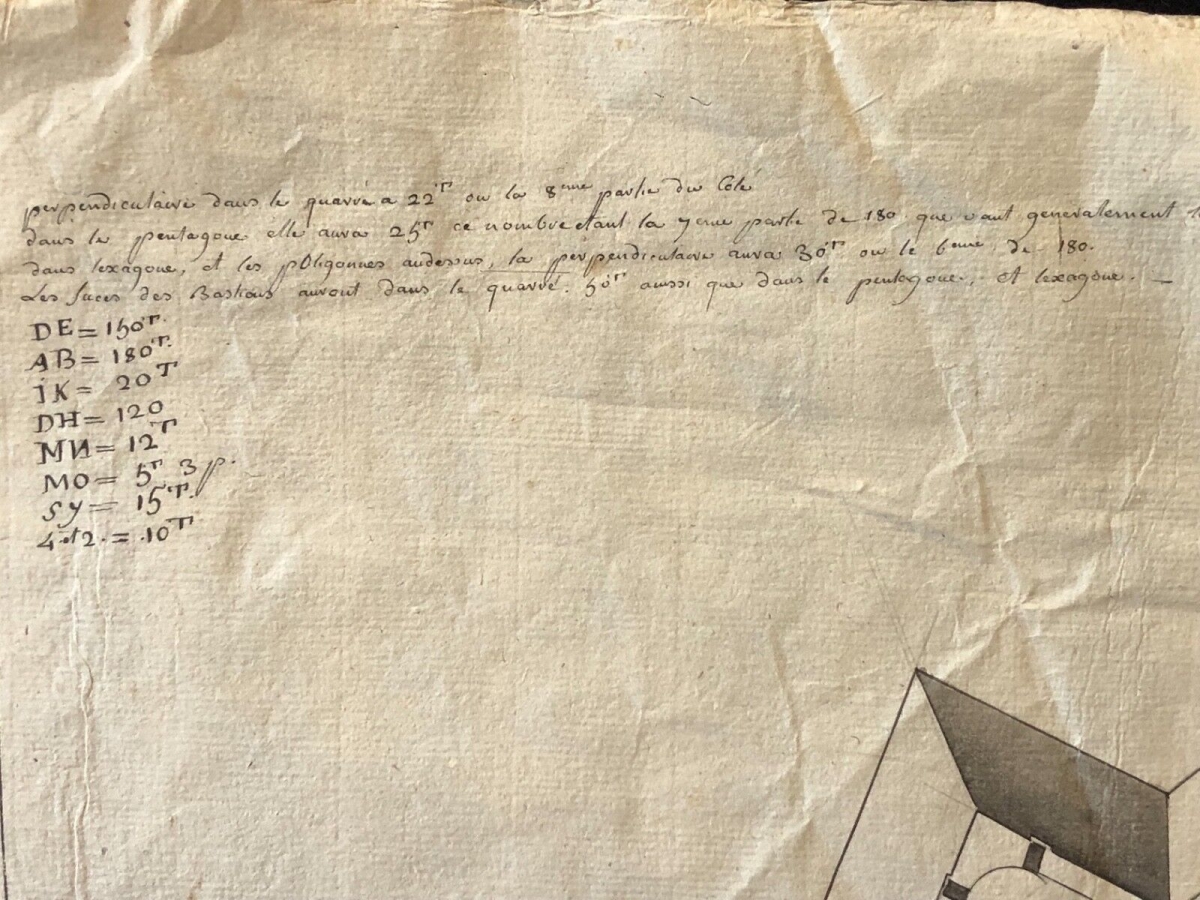 perpendiculaire dans le quarré a 22ᵀ ou la 8ᵉᵐᵉ partie du Coté
dans le pentagone elle aura 25ᵀ ce nombre etant la 7eme partie de 180. que vaut generalement
dans lexagone, et les pOligonnes audessus, la perpendiculaire aura 30ᵀ ou le 6ᵉᵐᵉ. de 180.
Les faces des Bastions auront dans le quarré. 50ᵀ aussi que dans le pentagone, et lexagone. —
DE = 150ᵀ.
AB = 180ᵀ.
iK = 20ᵀ
DH = 120
MN = 12ᵀ
MO = 5ᵀ 3p.
Sy = 15ᵀ.
4 et 2. = .10ᵀ